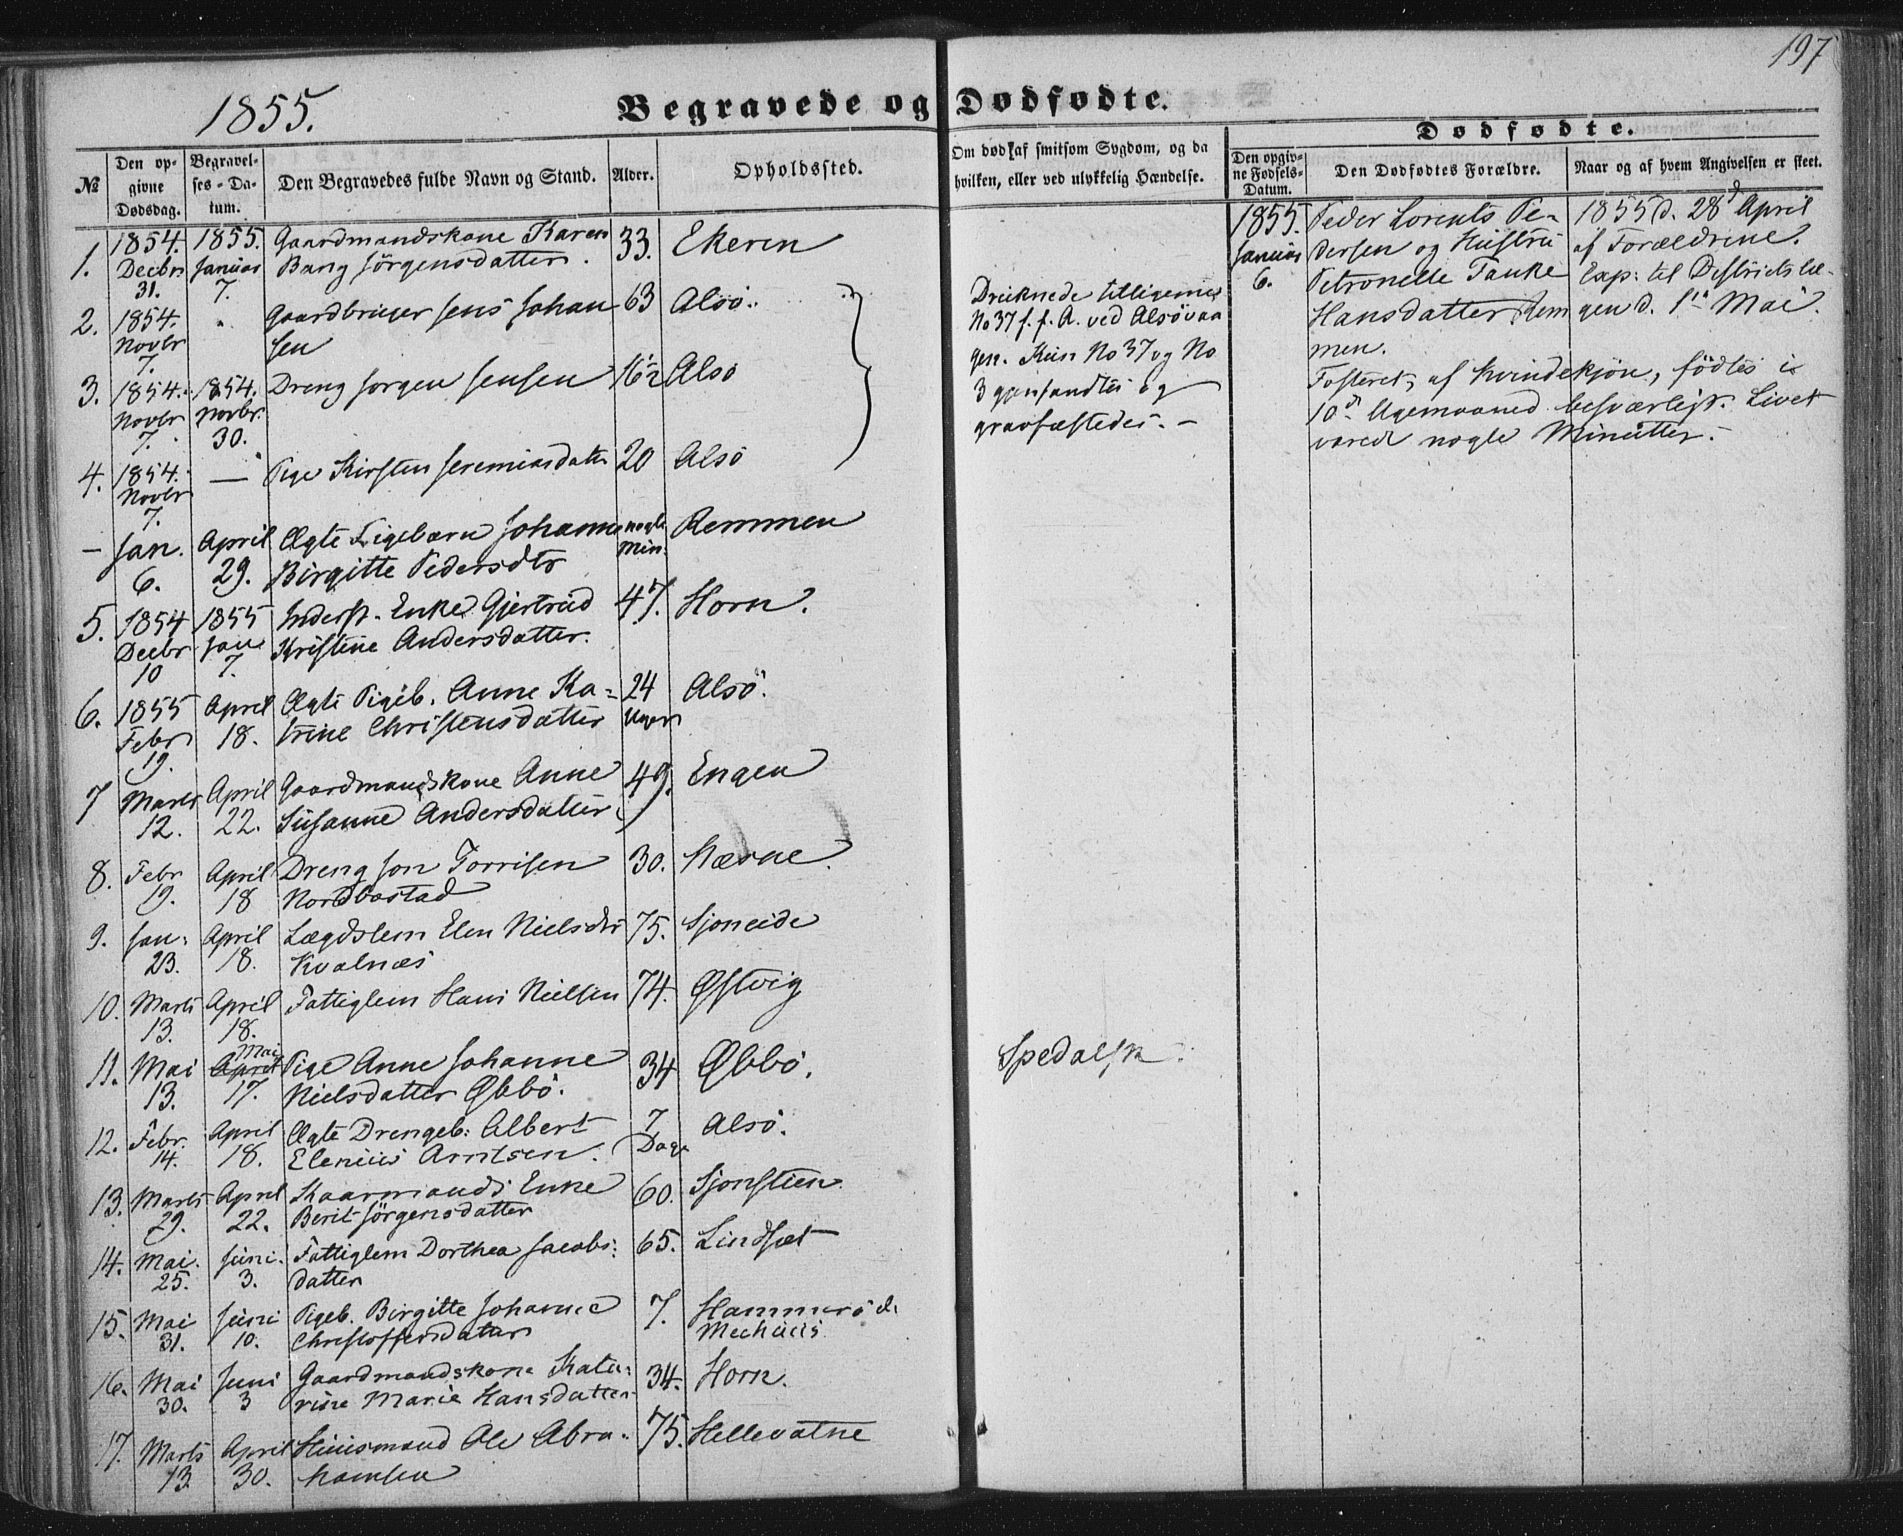 197
1855.
Begravede og Dødfødte.
Dødfødte.
№
Den opgivne Dødsdag.
Begravelses-Datum.
Den Begravedes fulde Navn og Stand.
Alder.
Opholdssted.
Om død af smitsom Sygdom, og da hvilken, eller ved ulykkelig Hændelse.
Den opgivne Fødsels-Datum.
Den Dødfødtes Forældre.
Naar og af hvem Angivelsen er skeet.
1. 1854. 1855. Gaardmandskone Karen 33. Ekeren
Decbr Januar Bang Jørgensdatter.
31. 7.
2. 1854. " Gaardbruger Jens Johan 63 Alsø.
Novbr sen
7.
3. 1854. 1854. Dreng Jørgen Jensen 16½ Alsø
Novbr Novbr
7. 30.
4. 1854. — Pige Kirsten Jeremiasdatter 20 Alsø
Novbr
7.
Druknede tilligemed
No 37 f. f. A. ved Alsøvaa
gen. Kun No 37 og No
3 gjenfandtes og
gravfæstedes. —
1855. Peder Lorents Pe- 1855 d. 28d April
Januar dersen og Hustru af Forældrene.
6. Petronelle Tanke Exp: til Distriktslæ-
Hansdatter, Rem gen d. 1ste Mai.
men.
Fosteret, af Kvindekjøn, fødtes i
10de Ugemaaned besværligt. Livet
varede nogle Minutter.
— Jan. April Ægte Pigebarn Johanne nogle Remmen
6. 29. Birgitte Pedersdtr Min.
5. 1854 1855 Inderst. Enke Gjertrud 47. Horn.
Decbr Jan Kristine Andersdatter.
10 7.
6. 1855 April Ægte Pigeb. Anne Ka- 24 Alsø.
Febr 18. trine Christensdatter Uger
19.
7 Marts April Gaardmandskone Anne 49. Engen
12. 22. Susanne Andersdatter
8. Febr April Dreng Jon Torrisen 30. Næsne
19. 18 Nordbostad
9. Jan. April Lægdslem Elen Nielsdtr 75. Sjoneide
23. 18. Kvalnæs
10. Marts April Fattiglem Hans Nielsen 74. Østvig
13. 18.
Mai
11. Mai April Pige Anne Johanne 34 Øbbø. Spedalsk.
13. 17. Nielsdatter Øbbø.
12. Febr. April Ægte Drengeb: Albert 7 Alsø.
14. 18. Elenius Arntsen. Dage
13. Marts April Kaarmands Enke 60. Sjonstien
29. 22. Berit Jørgensdatter
14. Mai. Juni. Fattiglem Dorthea Jacobs- 65. Lindset
25. 3. datter
15. Mai Juni Pigeb. Birgitte Johanne 7. Hammerø
31. 10. Christoffersdatter
16. Mai Juni Gaardmandskone Kata- 34. Horn.
30. 3 rine Marie Hansdatter
17. Marts April Huusmand Ole Abra- 75. Hellevatne
13. 30. hamsen